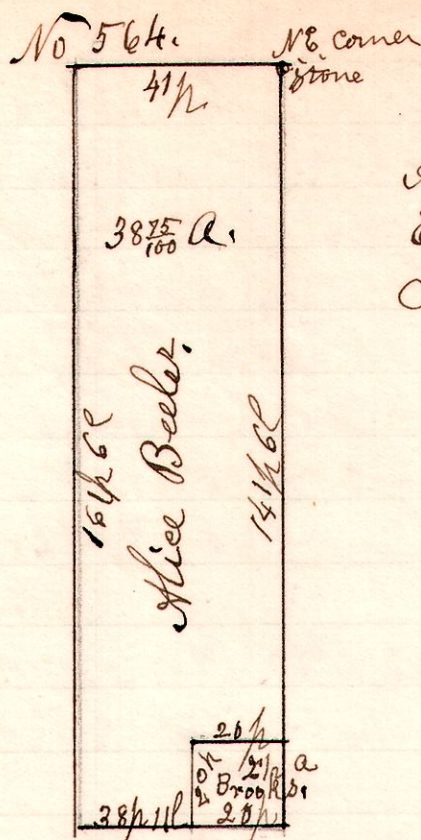 No 564.
NE corner
stone
41p
38 75/100 A.
Alice Beeler.
161p 6l
141p 6l
20p
20p
2 1/2 a
Brooks.
20p
38p 11l